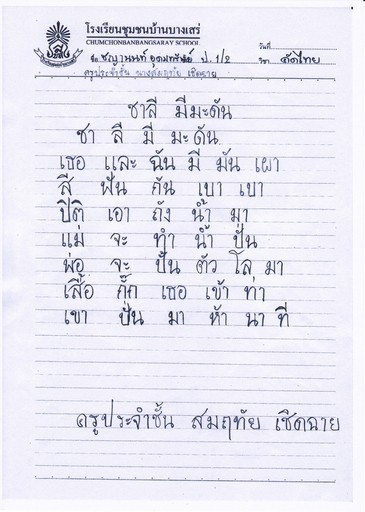 โรงเรียนชุมชนบ้านบางเสร่
CHUMCHONBANBANGSARAY SCHOOL
วันที่
ชื่อ ชญานนท์ อุดมทรัพย์ ป. 1/2 วิชา คัดไทย
ครูประจำชั้น นางสมฤทัย เชิดฉาย
ชาลี มีมะดัน
ชา ลี มี มะ ดัน
เธอ และ ฉัน มี มัน เผา
สี ฟัน กัน เบา เบา
ปิติ เอา ถัง น้ำ มา
แม่ จะ ทำ น้ำ ปั่น
พ่อ จะ ปั้น ตัว โล มา
เสื้อ กั๊ก เธอ เข้า ท่า
เขา ปั่น มา ห้า นา ที
ครูประจำชั้น สมฤทัย เชิดฉาย